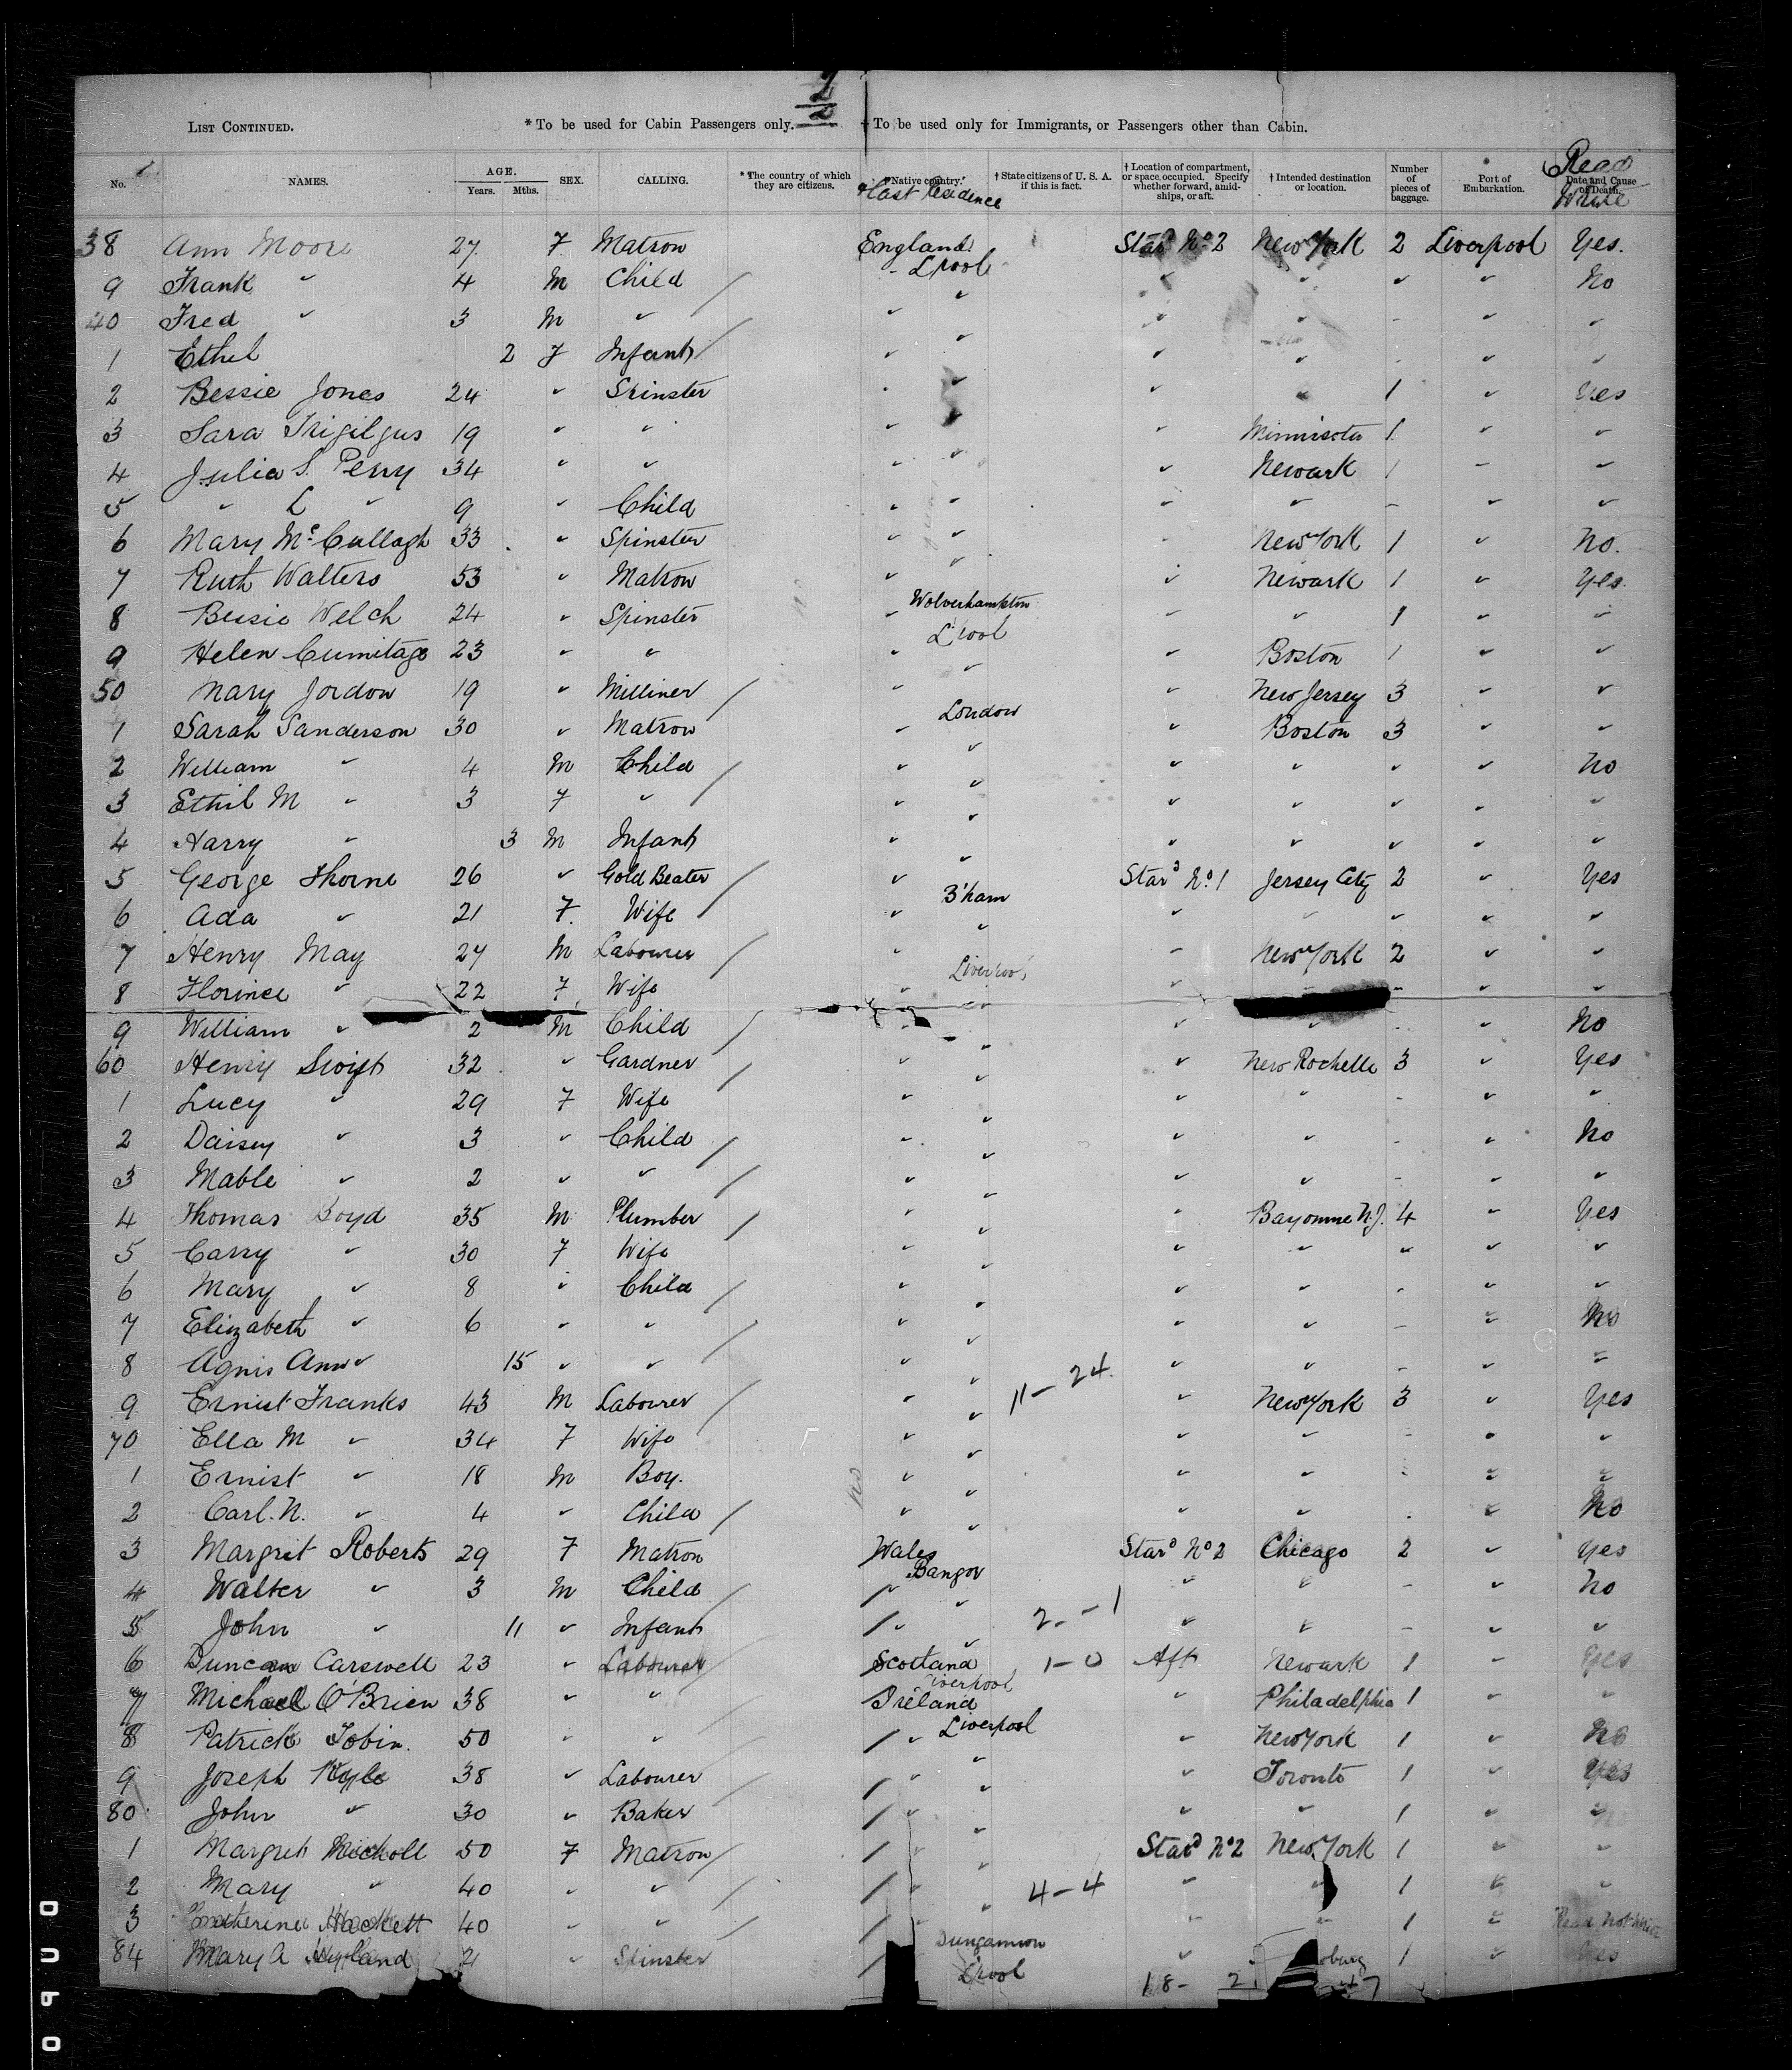 2
2
LIST CONTINUED. * To be used for Cabin Passengers only. † To be used only for Immigrants, or Passengers other than Cabin.
No. NAMES. AGE. Years. Mths. SEX. CALLING. * The country of which they are citizens. † Native country. & Last Residence † State citizens of U. S. A. if this is fact. † Location of compartment, or space occupied. Specify whether forward, amidships, or aft. † Intended destination or location. Number of pieces of baggage. Port of Embarkation. Date and Cause of Death. Read Write
38 Ann Moore 27 F Matron England L'pool Starᵈ Nº 2 New York 2 Liverpool Yes.
9 Frank " 4 M Child " " " " " " No
40 Fred " 3 M " " " " " - " "
1 Ethel 2 F Infant " " " " - " "
2 Bessie Jones 24 " Spinster " " " " 1 " Yes
3 Sara 19 " " " " " 1 " "
4 Julia S. Perry 34 " " " " " Newark 1 " "
5 " L " 9 " Child " " " " - " "
6 Mary McCullagh 33 " Spinster " " " New York 1 " No.
7 Ruth Walters 53 " Matron " Wolverhampton " Newark 1 " Yes.
8 Bessie Welch 24 " Spinster " L'pool " " 1 " "
9 Helen 23 " " " " " Boston 1 " "
50 Mary Jordon 19 " Milliner " London " New Jersey 3 " "
1 Sarah Sanderson 30 " Matron " " " Boston 3 " "
2 William " 4 M Child " " " " " " No
3 Ethil M " 3 F " " " " " " " "
4 Harry " 3 M Infant " " " " " " "
5 George Thorne 26 " Gold Beater " B'ham Starᵈ Nº 1 Jersey City 2 " Yes
6 Ada " 21 F. Wife " " " " " " "
7 Henry May 27 M Labourer " Liverpool " New York 2 " "
8 Florince " 22 F Wife " " " " " "
9 William " 2 M Child " " " " - " No
60 Henry Swift 32 " Gardner " " " New Rochelle 3 " Yes
1 Lucy " 29 F Wife " " " " - " "
2 Daisey " 3 " Child " " " " - " No
3 Mable " 2 " " " " " " - " "
4 Thomas Boyd 35 M Plumber " " " Bayonne N.J. 4 " Yes
5 Carry " 30 F Wife " " " " " " "
6 Mary " 8 " Child " " " " - " "
7 Elizabeth " 6 " " " " " " - " No
8 Agnis Ann " 15 " " " " " " - " "
9 Ernist Franks 43 M Labourer " " 11 - 24 " New York 3 " Yes
70 Ella M " 34 F Wife " " " " - " "
1 Ernist " 18 M Boy. " " " " - " "
2 Carl. N. " 4 " Child " " " " - " No
3 Margrit Roberts 29 F Matron Wales Bangor Starᵈ Nº 2 Chicago 2 " Yes
4 Walter " 3 M Child " " " " - " No
5 John " 11 " Infant " " 2 - 1 " " - " "
6 Duncan Carswell 23 " Labourer Scotland Liverpool 1 - 0 Aft Newark 1 " Yes
7 Michael O'Brien 38 " " Ireland Liverpool " Philadelphia 1 " "
8 Patrick Tobin. 50 " " " " " New York 1 " No
9 Joseph Kyle 38 " Labourer " " " Toronto 1 " Yes
80 John " 30 " Baker " " " " 1 " "
1 Margrit Nicholl 50 F Matron " " Starᵈ Nº 2 New York 1 " "
2 Mary " 40 " " " " 4 - 4 " " 1 " "
3 Catherine Hackett 40 " " " Dungannon " " 1 " Read not write
84 Mary A Hyland 21 " Spinster L'pool " 1 " Yes
18 - 47
0090